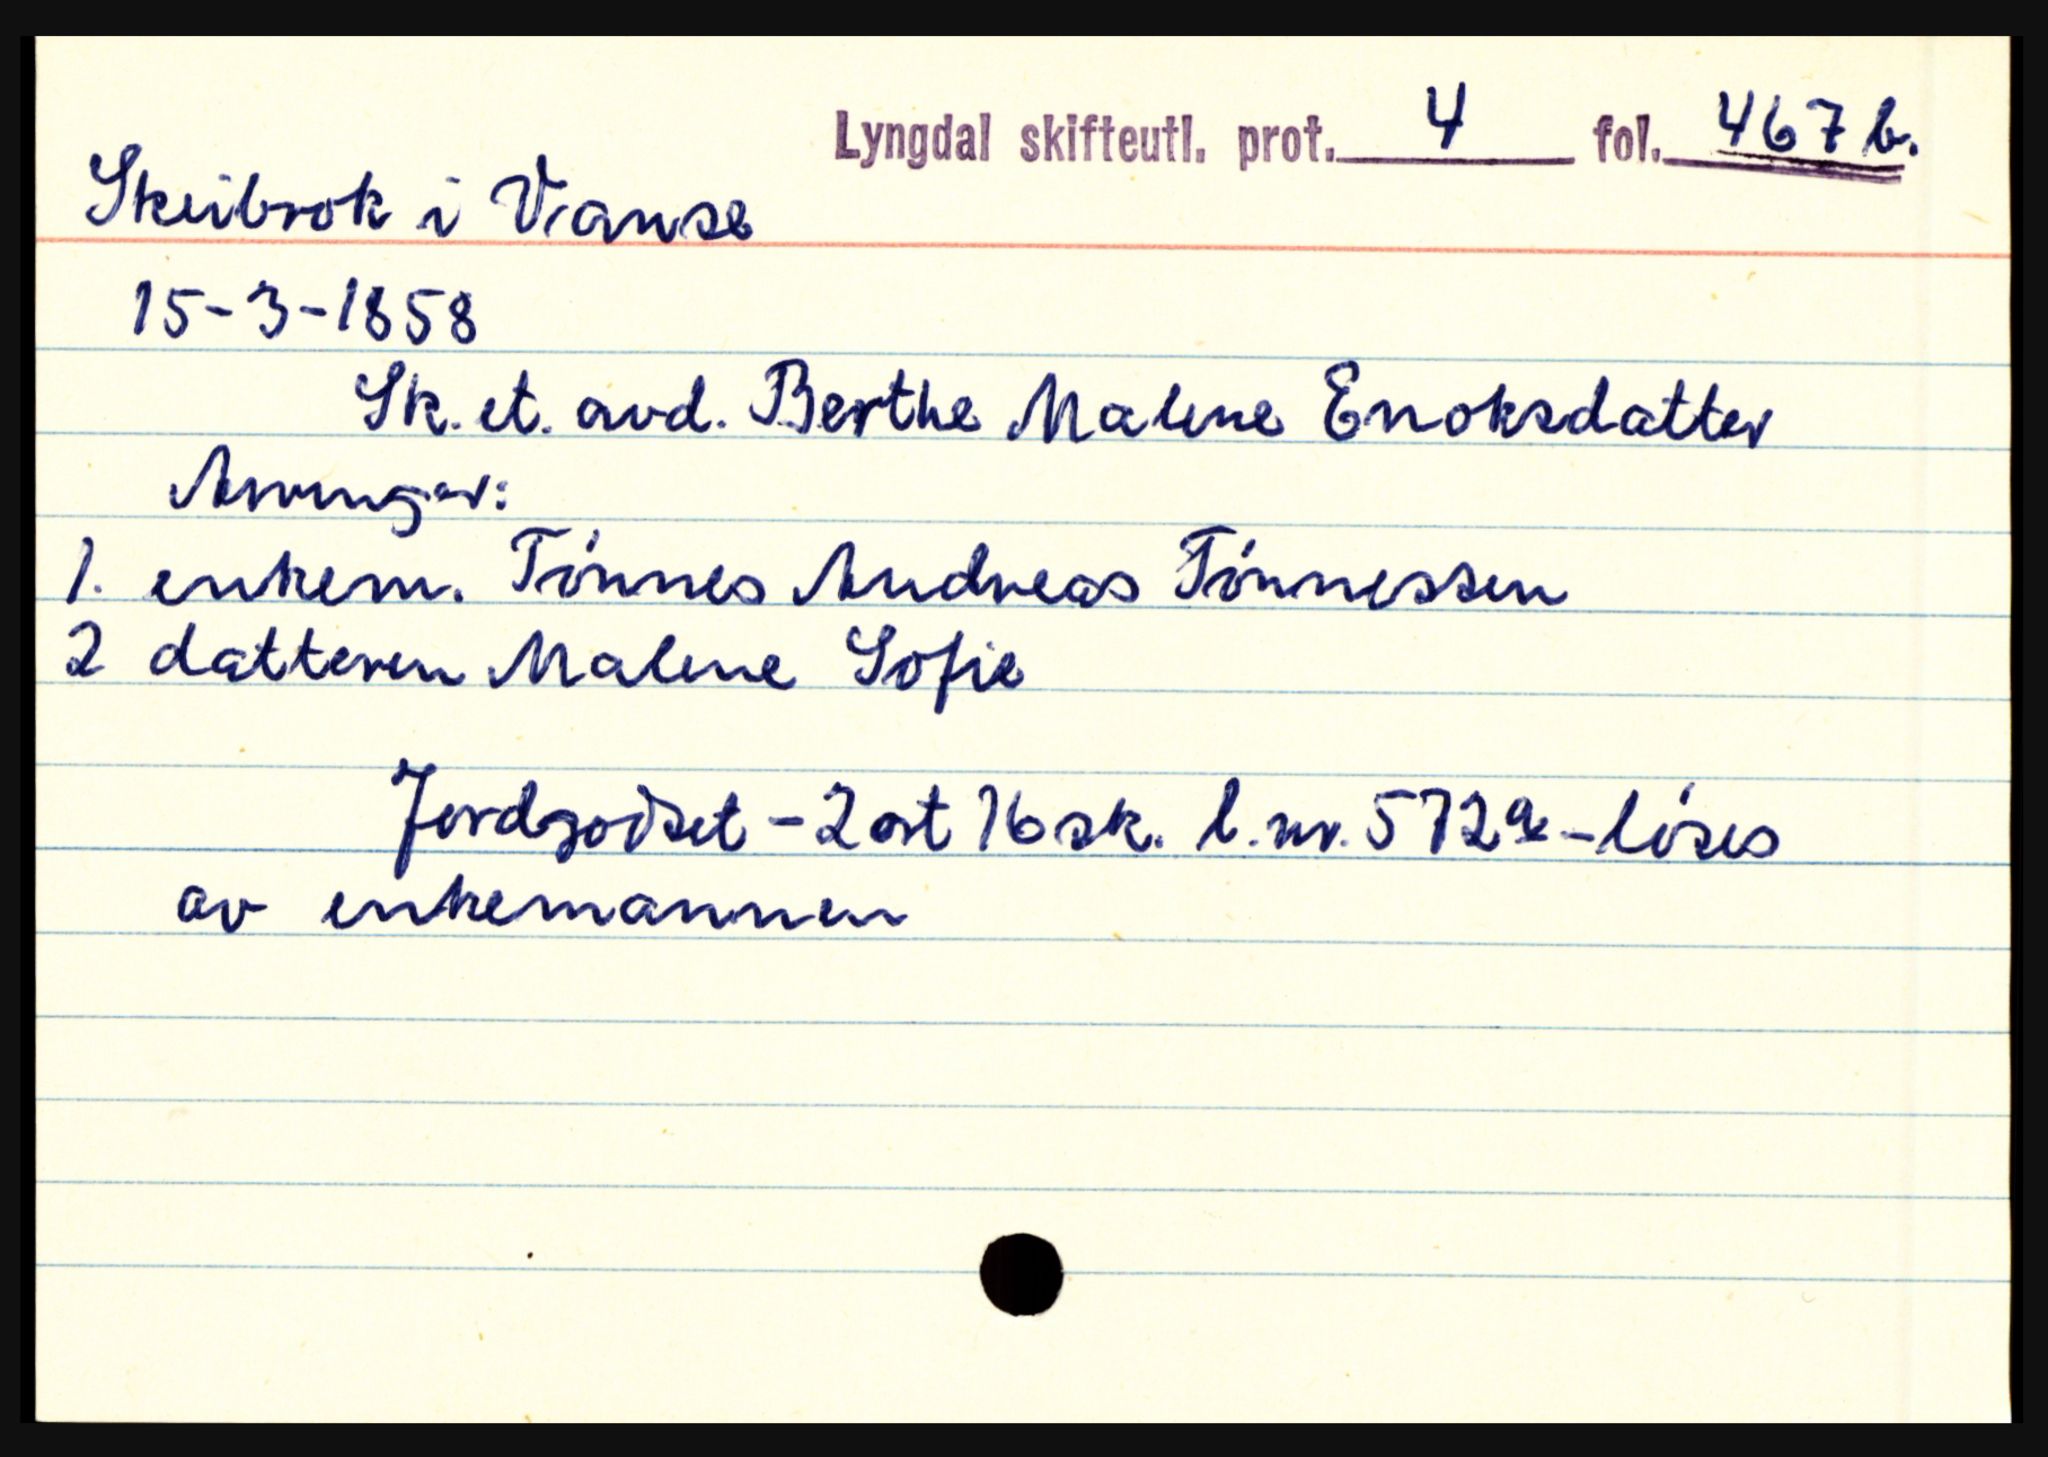 Lyngdal skifteutl. prot. 4 fol. 467b.
Skeibrok i Vanse
15-3-1858
Sk. et. avd. Berthe Malene Enoksdatter
Arvinger:
1. enkem. Tónnes Andreas Tónnessen
2 datteren Malene Sofie
Jordgodset - 2 ort 16 sk. l.nr. 572a - lóses
av enkemannen